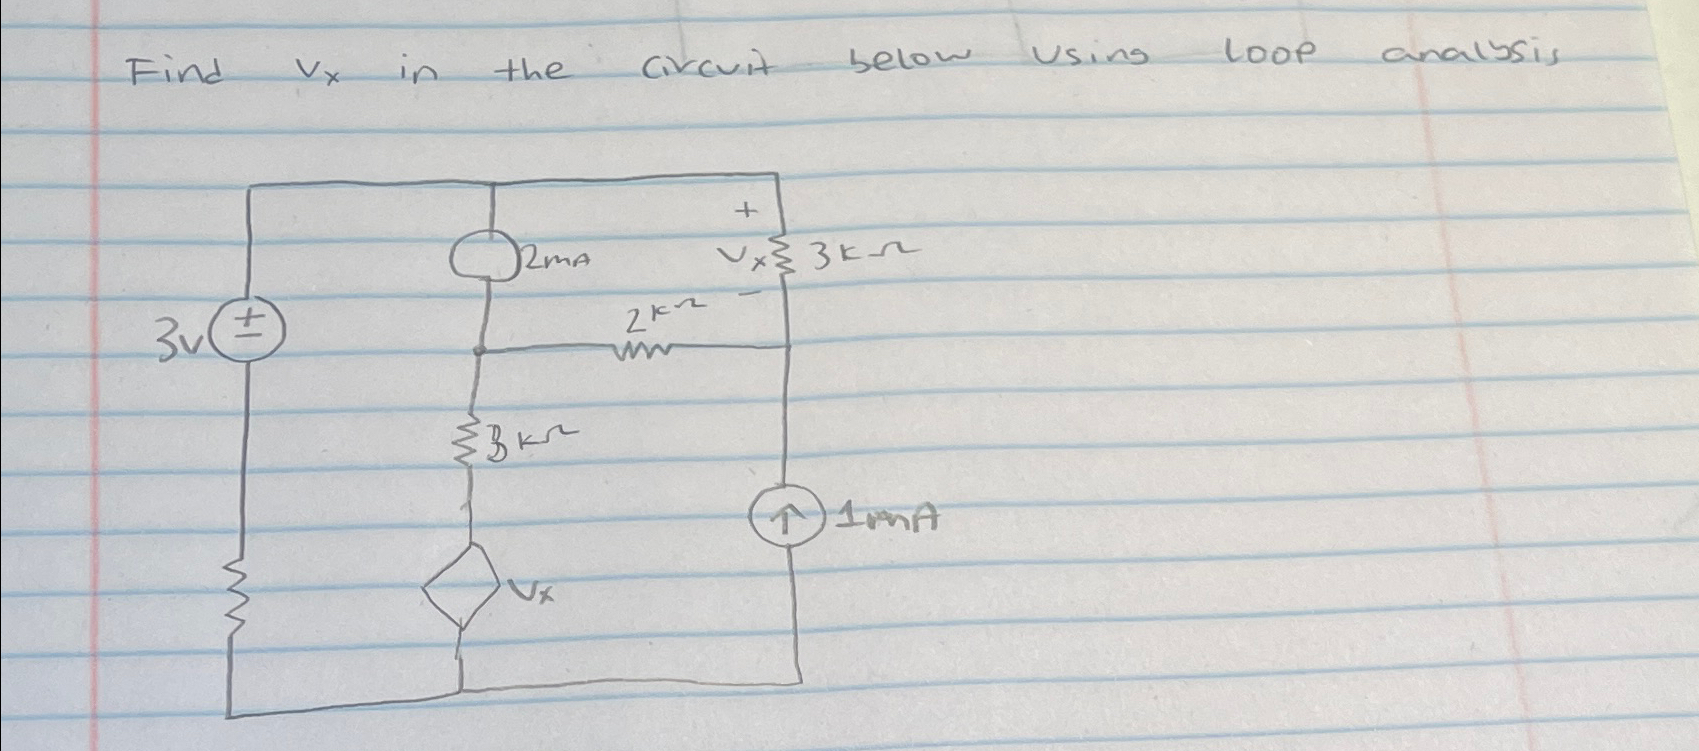 Find Vx in the circuit below using loop analysis
+
2mA
Vx 3kΩ
-
2kΩ
3v + -
3kΩ
1mA
Vx